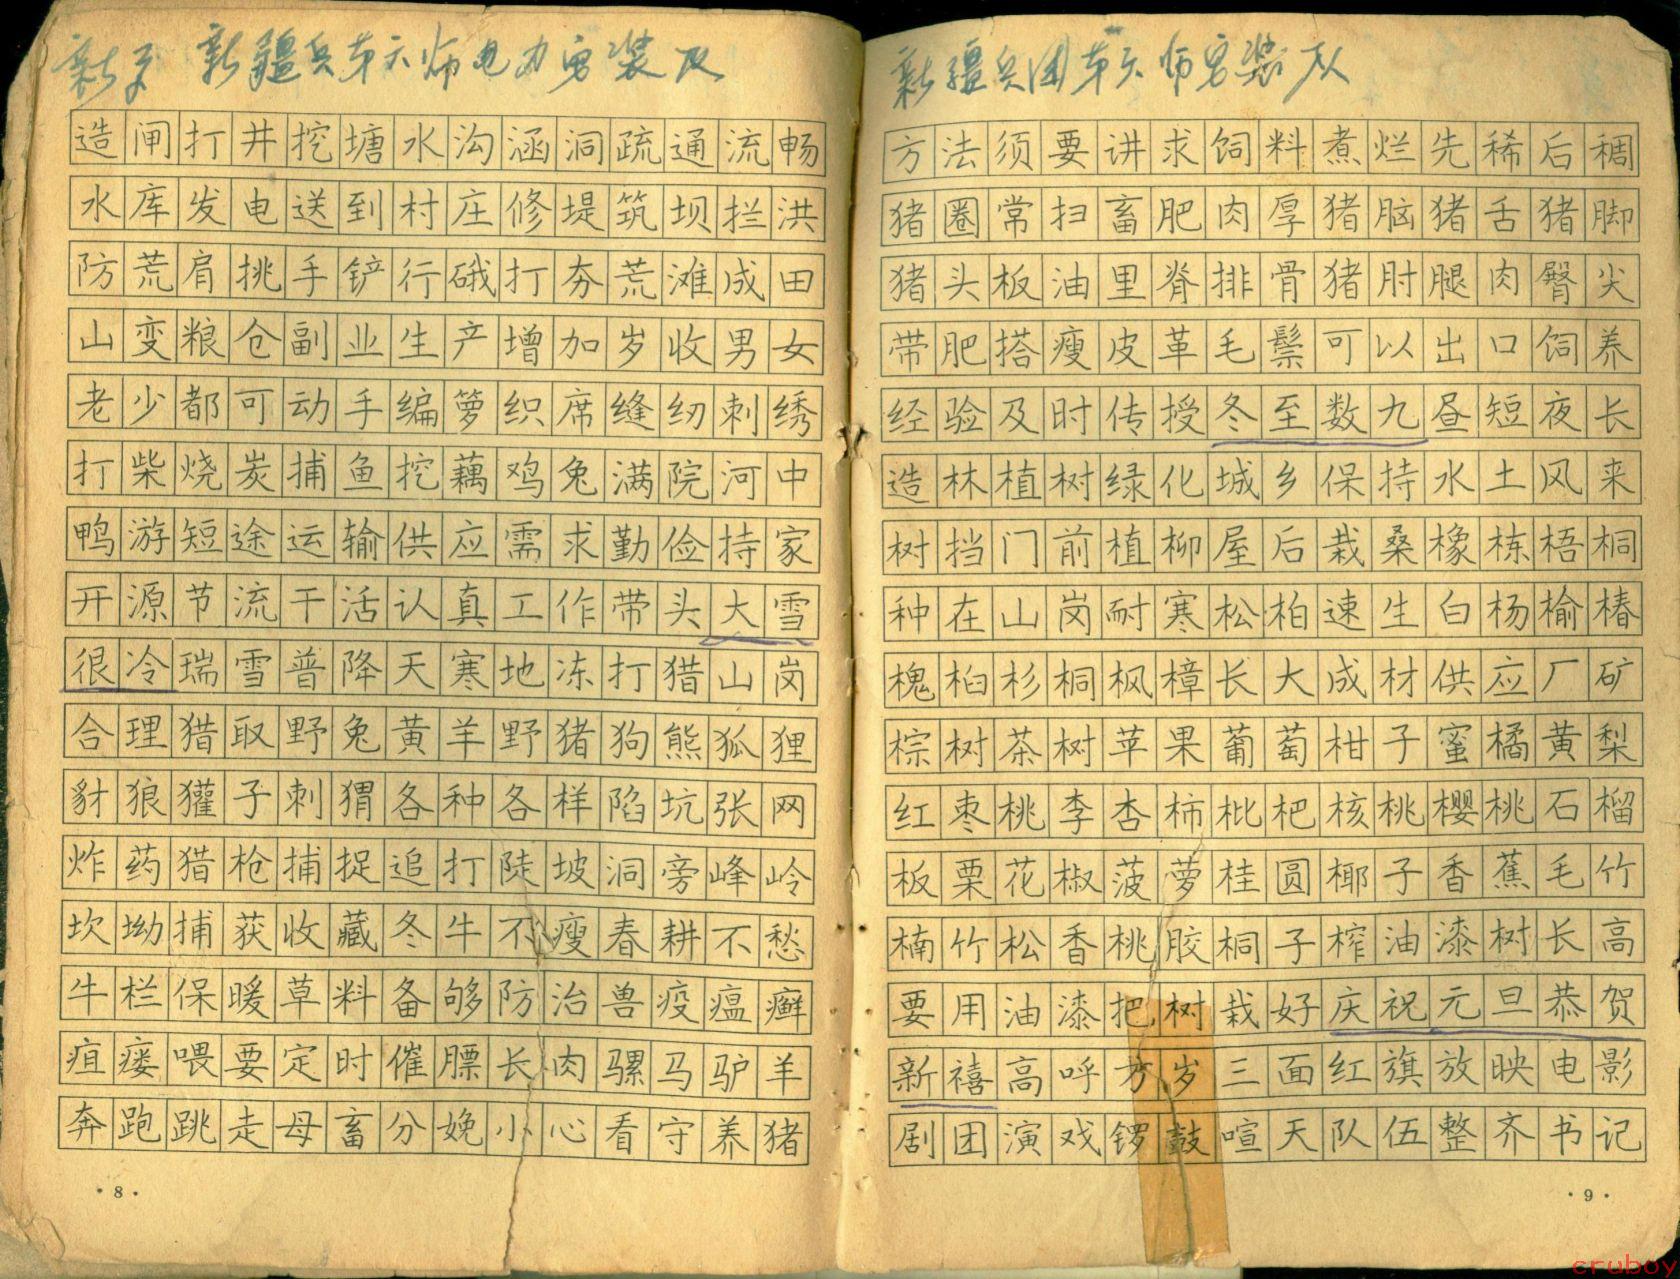 新疆兵第六师电力安装队
造闸打井挖塘水沟涵洞疏通流畅
水库发电送到村庄修堤筑坝拦洪
防荒肩挑手铲行硪打夯荒滩成田
山变粮仓副业生产增加岁收男女
老少都可动手编箩织席缝纫刺绣
打柴烧炭捕鱼挖藕鸡兔满院河中
鸭游短途运输供应需求勤俭持家
开源节流干活认真工作带头大雪
很冷瑞雪普降天寒地冻打猎山岗
合理猎取野兔黄羊野猪狗熊狐狸
豺狼獾子刺猬各种各样陷坑张网
炸药猎枪捕捉追打陡坡洞旁峰岭
坎坳捕获收藏冬牛不瘦春耕不愁
牛栏保暖草料备够防治兽疫瘟癣
疽瘘喂要定时催膘长肉骡马驴羊
奔跑跳走母畜分娩小心看守养猪
·8·
新疆兵团第六师安装队
方法须要讲求饲料煮烂先稀后稠
猪圈常扫畜肥肉厚猪脑猪舌猪脚
猪头板油里脊排骨猪肘腿肉臀尖
带肥搭瘦皮革毛鬃可以出口饲养
经验及时传授冬至数九昼短夜长
造林植树绿化城乡保持水土风来
树挡门前植柳屋后栽桑橡栋梧桐
种在山岗耐寒松柏速生白杨榆椿
槐桕杉桐枫樟长大成材供应厂矿
棕树茶树苹果葡萄柑子蜜橘黄梨
红枣桃李杏柿枇杷核桃樱桃石榴
板栗花椒菠萝桂圆椰子香蕉毛竹
楠竹松香桃胶桐子榨油漆树长高
要用油漆把树栽好庆祝元旦恭贺
新禧高呼方岁三面红旗放映电影
剧团演戏锣鼓喧天队伍整齐书记
·9·
cruboy